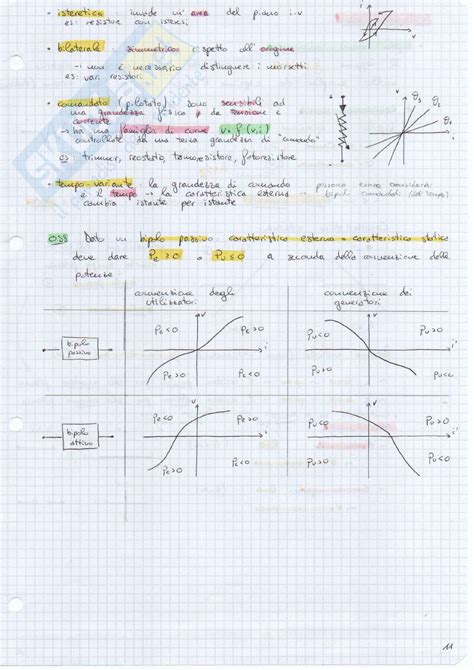 • isteretico : invade un' area del piano i-v
es: resistore con isteresi
• bilaterale : simmetrico rispetto all' origine
→ non è necessario distinguere i morsetti
es: varistori
• comandato (pilotato) : sono sensibili ad
una grandezza fisica p da tensione e
corrente
→ ha una famiglia di curve v = f(v, i)
controllate da una terza grandezza di "comando"
es: trimmer, reostato, termoresistore, fotoresistore
• tempo-variante : la grandezza di comando
è il tempo → la caratteristica esterna
cambia istante per istante
possono essere considerati
bipoli comandati (dal tempo)
OSS Dato un bipolo passivo: caratteristica esterna = caratteristica statica
deve dare Pe ≥ 0 o Pu ≤ 0 a seconda della convenzione delle
potenze
convenzione degli
utilizzatori
convenzione dei
generatori
bipolo
passivo
Pe<0 v Pe>0 i
Pe>0 Pe<0
Pu<0 v Pu>0 i
Pu>0 Pu<0
bipolo
attivo
Pe<0 v Pe>0 i
Pe>0 Pe<0
Pu<0 v Pu>0 i
Pu>0 Pu<0
11